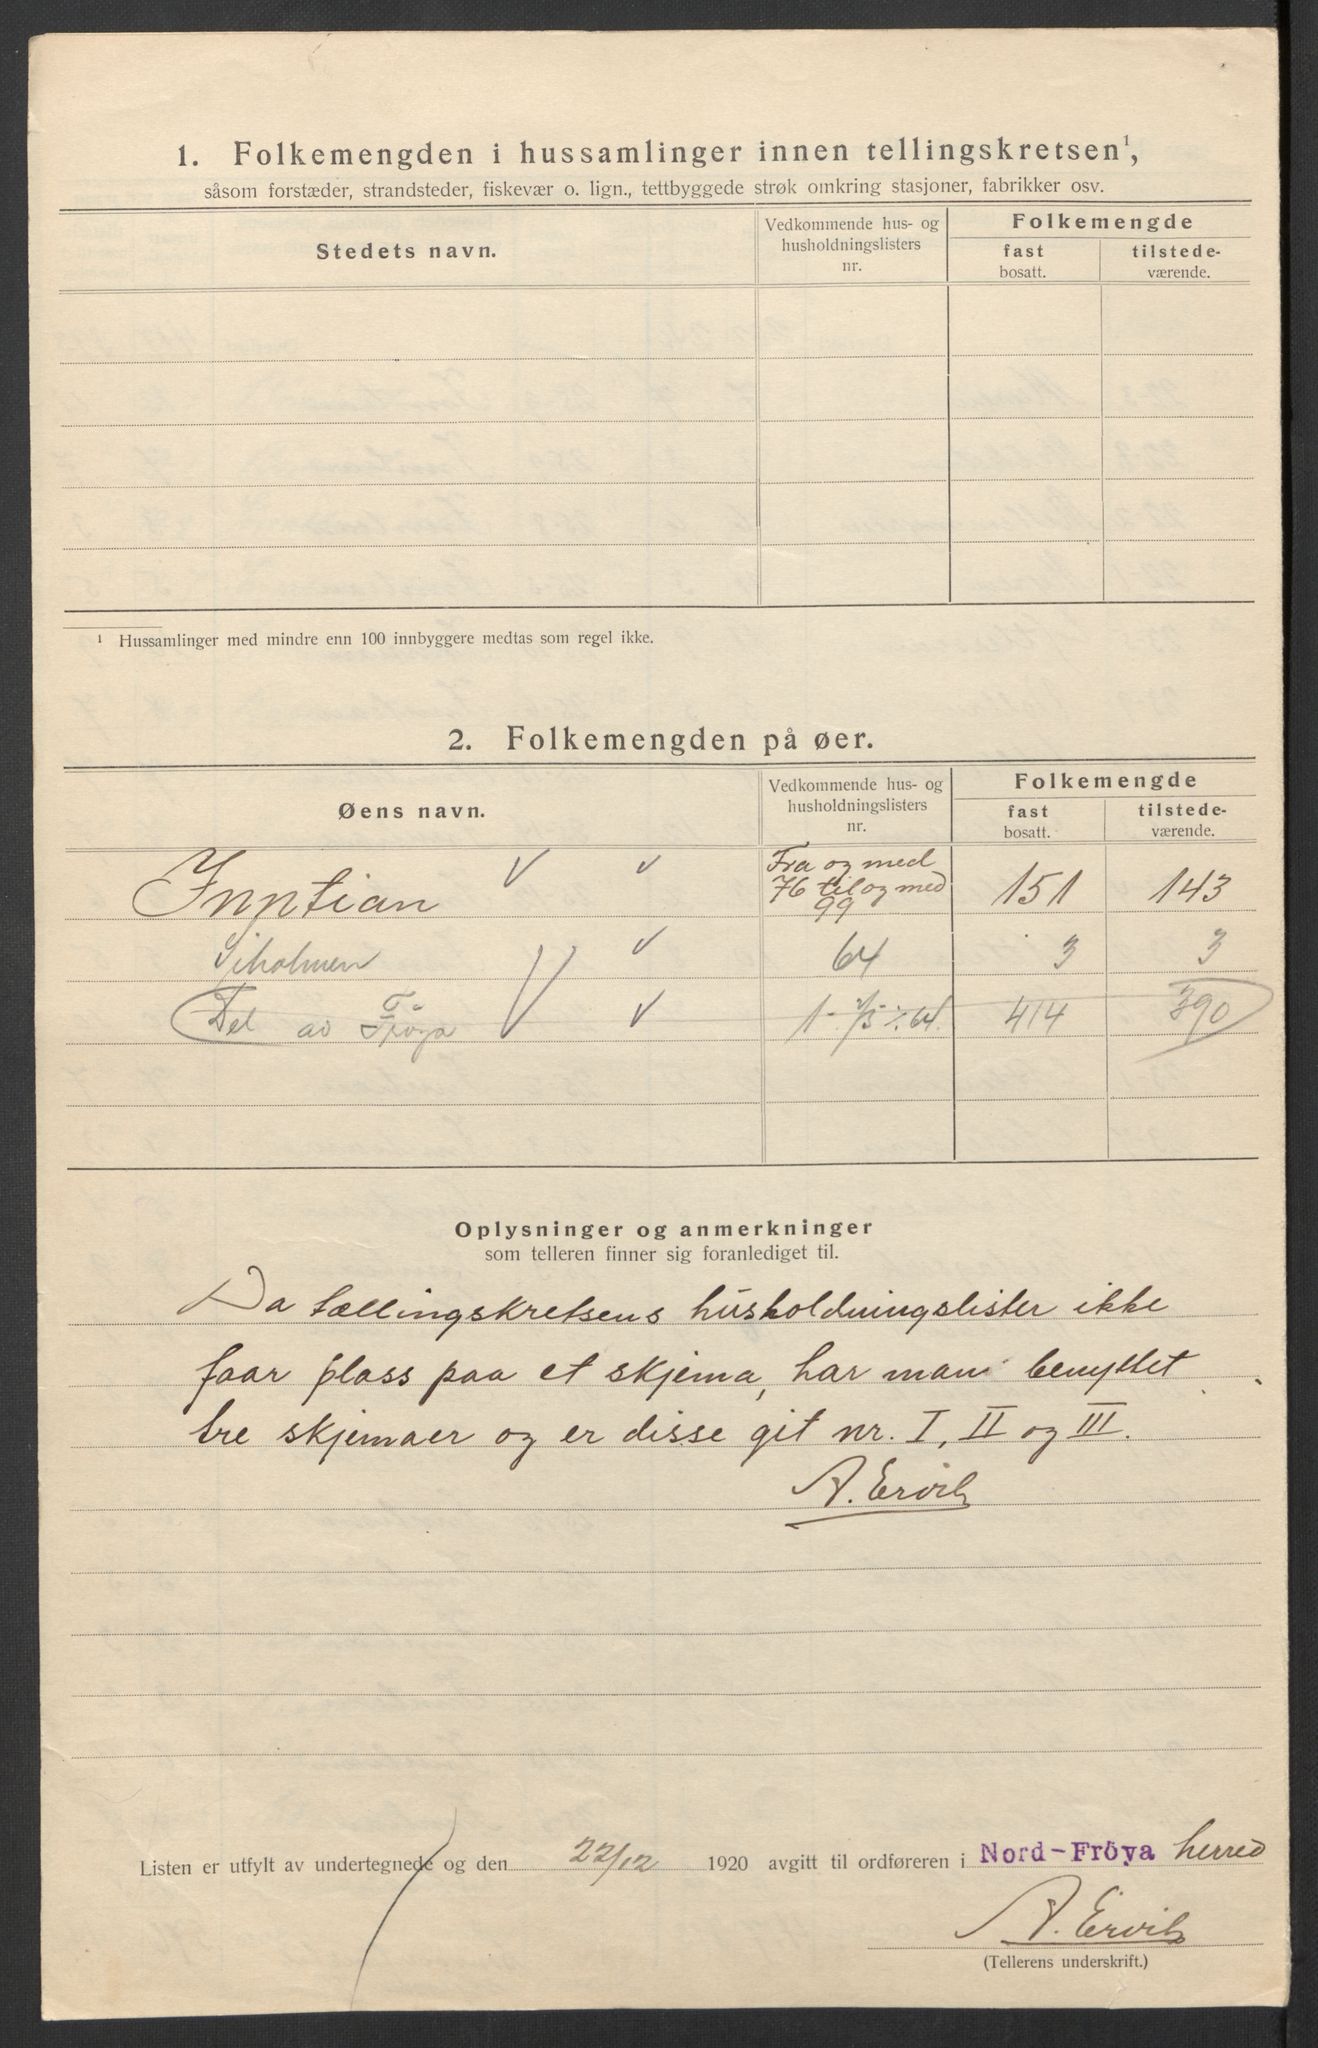 1. Folkemengden i hussamlinger innen tellingskretsen¹,
såsom forstæder, strandsteder, fiskevær o. lign., tettbyggede strøk omkring stasjoner, fabrikker osv.
Stedets navn.
Vedkommende hus- og
husholdningslisters
nr.
Folkemengde
fast
bosatt.
tilstede-
værende.
¹ Hussamlinger med mindre enn 100 innbyggere medtas som regel ikke.
2. Folkemengden på øer.
Øens navn.
Vedkommende hus- og
husholdningslisters
nr.
Folkemengde
fast
bosatt.
tilstede-
værende.
Inntian
Fra og med
76 til og med
99
151 143
64 3 3
Del av Frøya 414 390
Oplysninger og anmerkninger
som telleren finner sig foranlediget til.
Da tællingskretsens husholdningslister ikke
faar plass paa et skjema, har man benyttet
tre skjemaer og er disse git nr. I, II og III.
A. Ervik
Listen er utfylt av undertegnede og den 22/12 1920 avgitt til ordføreren i Nord-Fröya herred
A. Ervik
(Tellerens underskrift.)